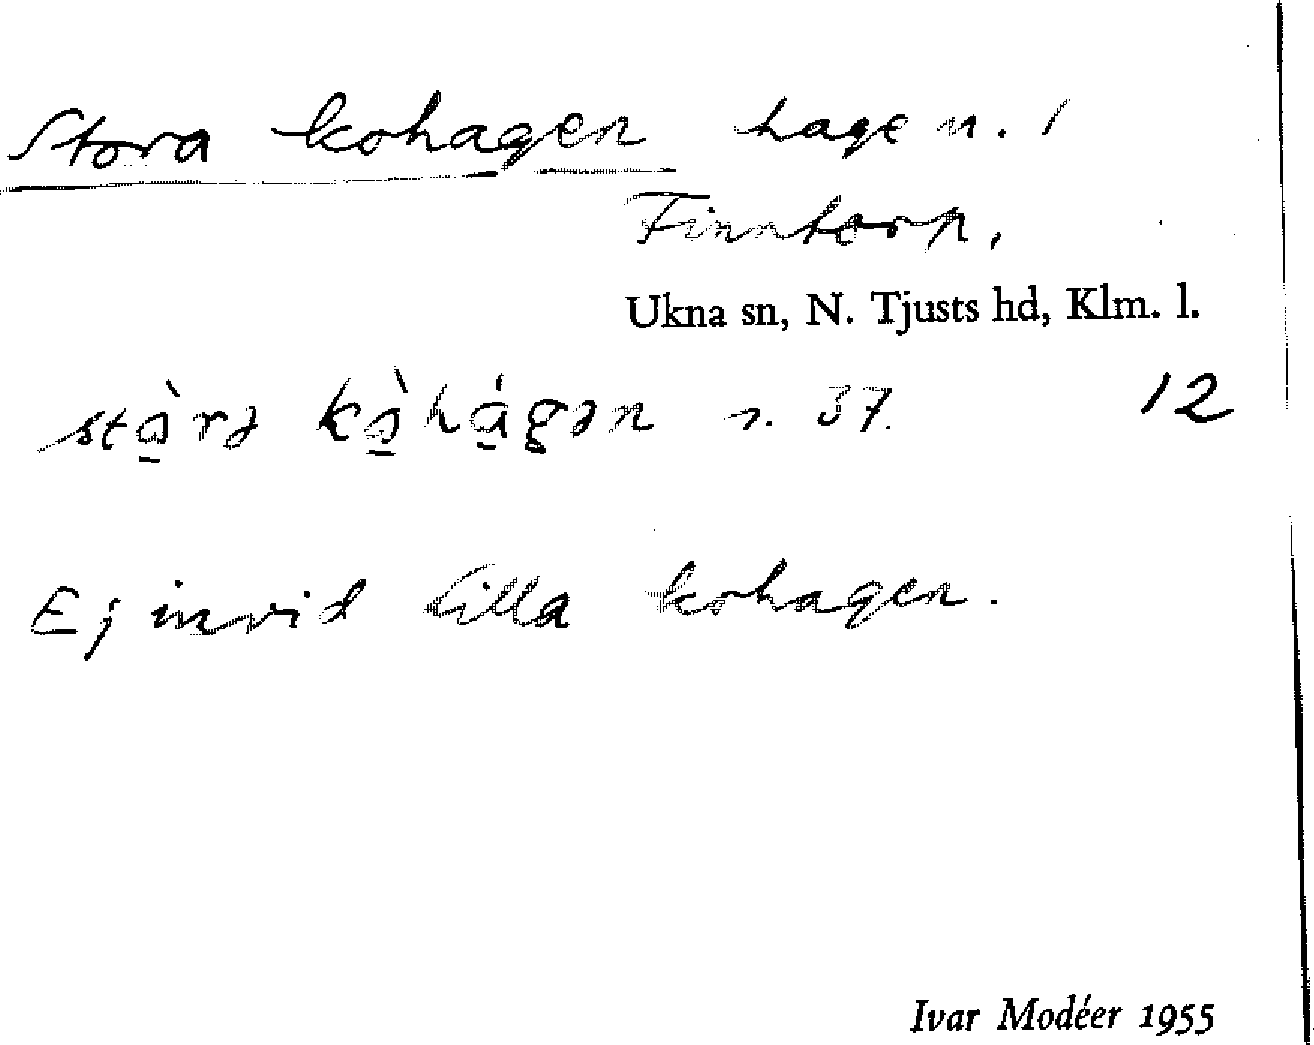 Stora kohagen hage n. 1
Finntorp,
Ukna sn, N. Tjusts hd, Klm. l.
stò̱rə kò̱há̱gən n. 37. 12
Ej invid Lilla kohagen.
Ivar Modéer 1955